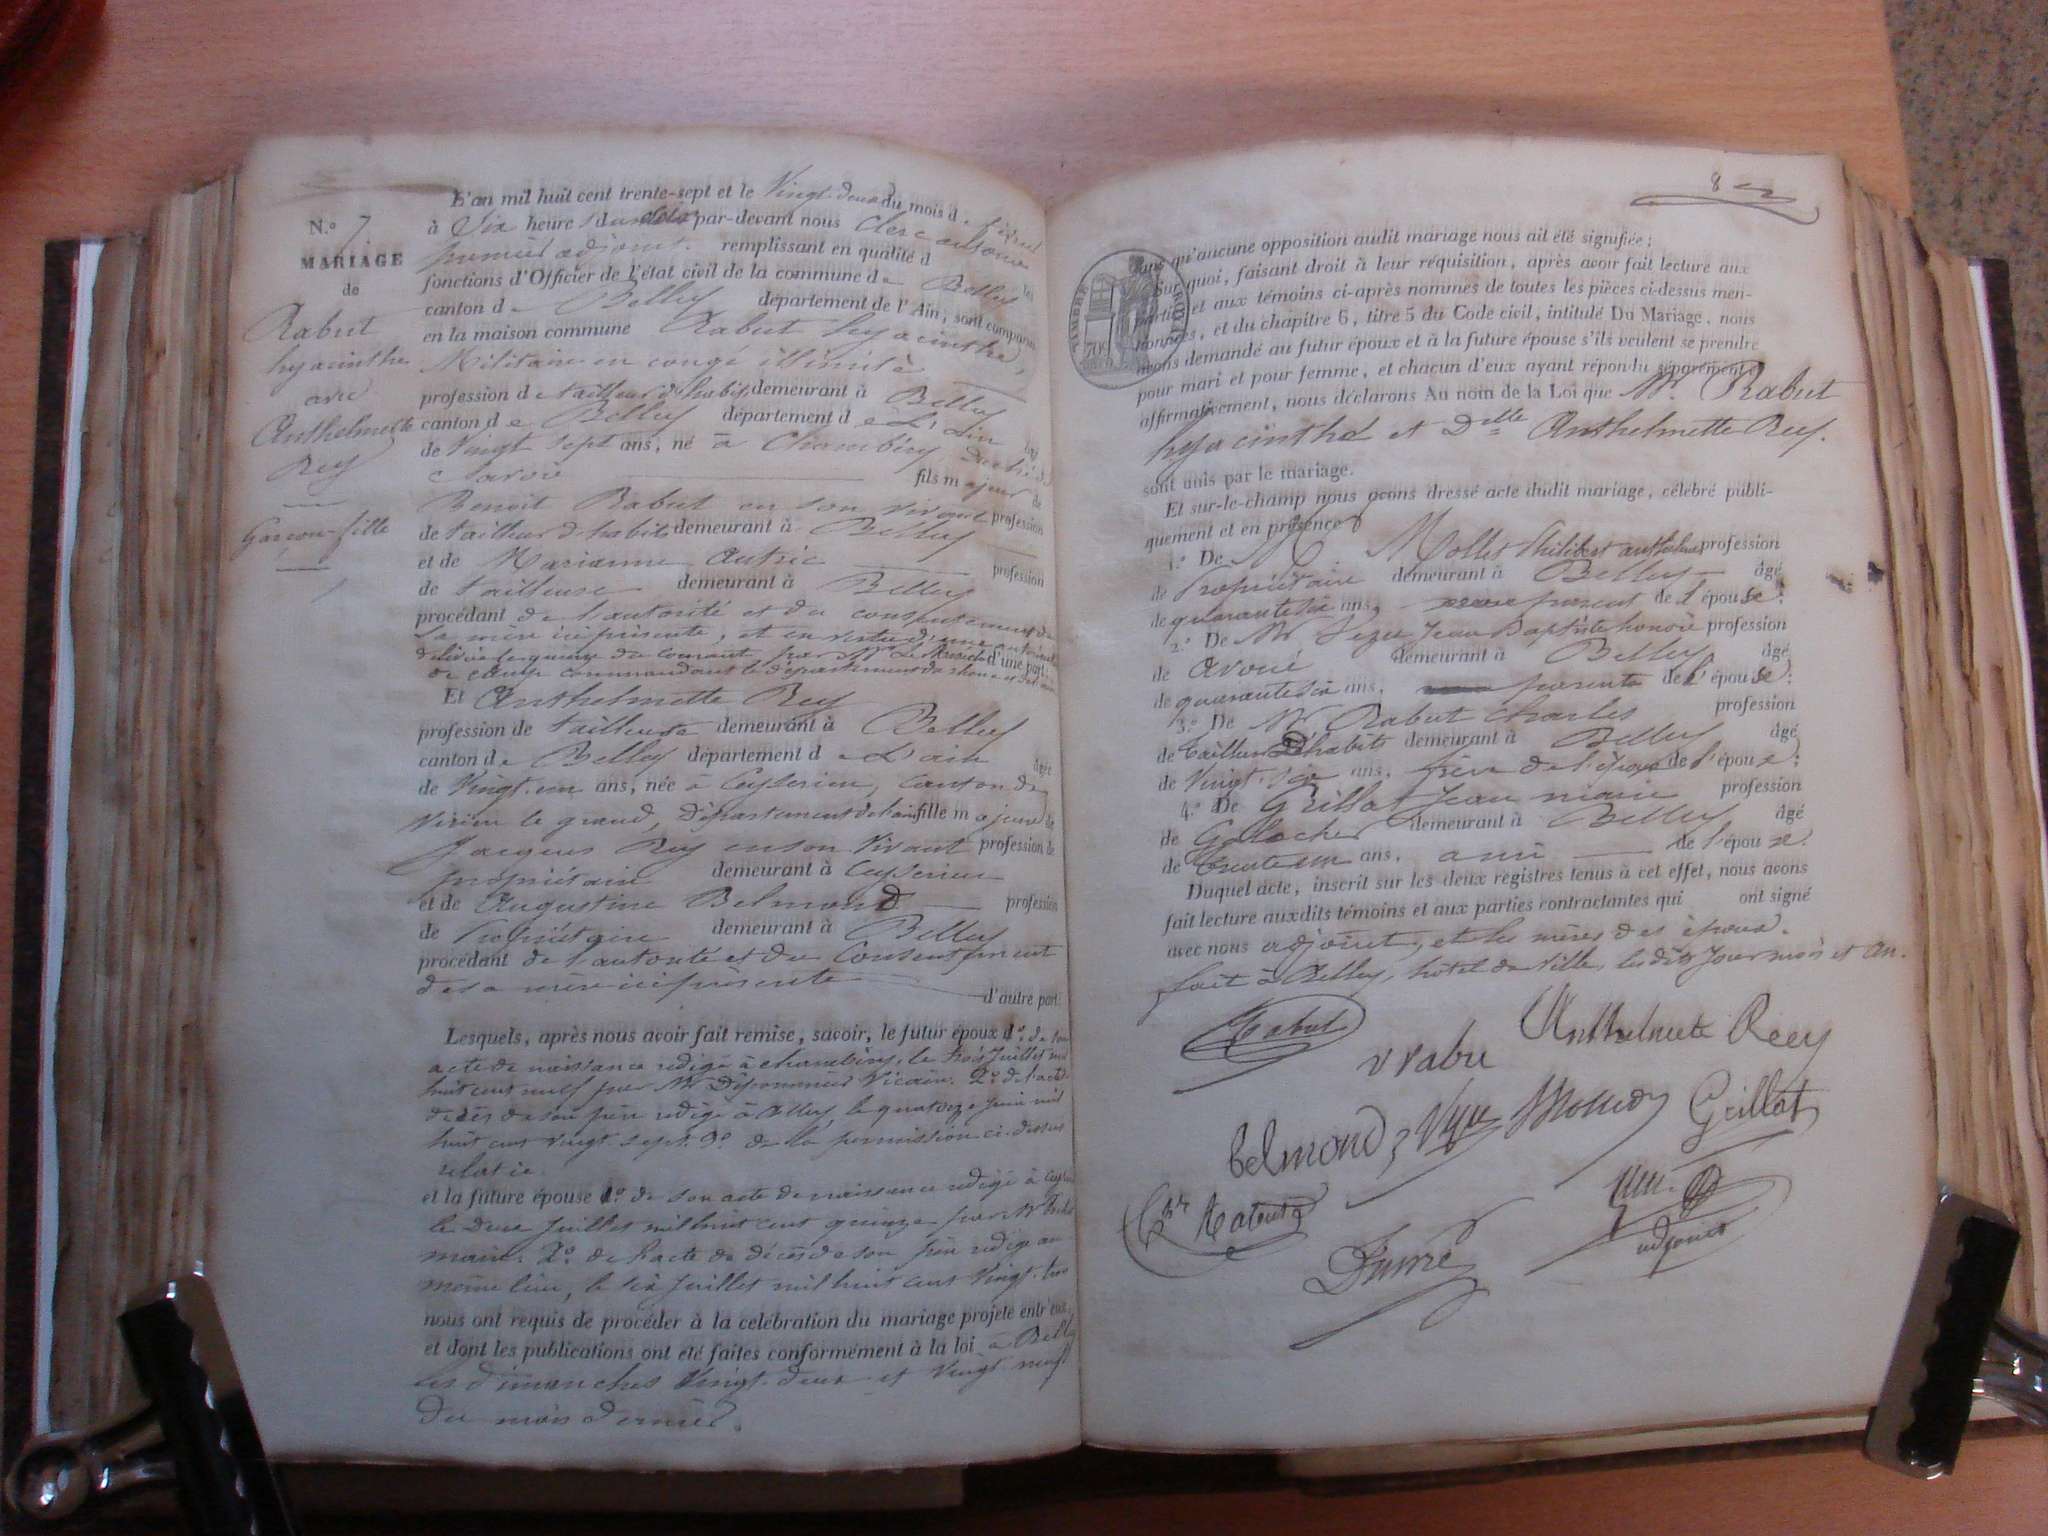 N.º 7
MARIAGE
de
Rabut
hyacinthe
avec
Anthelmette
Rey
Garçon-fille
L'an mil huit cent trente-sept et le Vingt-deux du mois de février
à Six heures du par-devant nous Clerc antoine
premier adjoint remplissant en qualité d
fonctions d'Officier de l'état civil de la commune de Belley
canton de Belley département de l'Ain, sont comparus
en la maison commune Rabut hyacinthe,
Militaire en congé illimité
profession de tailleur d'habits demeurant à Belley
canton de Belley département de L'Ain âgé
de Vingt sept ans, né à Chambéry Duché de
Savoie fils majeur de
Benoit Rabut en son vivant profession
de tailleur d'habits demeurant à Belley
et de Marianne Autric profession
de tailleuse demeurant à Belley
procédant de l'autorité et du consentement de
sa mère ici présente, et en vertu d'une
délivrée le quinze du courant par Mr Le d'une part.
de camp commandant le département du rhône
Et Anthelmette Rey
profession de tailleuse demeurant à Belley
canton de Belley département de L'ain âgée
de Vingt-un ans, née à Ceyzerieu, canton de
Virieu le grand, Département de l'ain fille majeure de
Jacques Rey en son Vivant profession de
propriétaire demeurant à Ceyzerieu
et de Augustine Belmond profession
de Propriétaire demeurant à Belley
procédant de l'autorité et du Consentement
de sa mère ici présente d'autre part.
Lesquels, après nous avoir fait remise, savoir, le futur époux 1º de son
acte de naissance rédigé à chambéry, le trois Juillet mil
huit cent neuf par Mr Vicaire. 2º de l'acte
décès de son père rédigé à Belley, le quatorze juin mil
huit cent vingt-sept. 3º de la permission ci-dessus
relatée
et la future épouse 1º de son acte de naissance rédigé à
le deux Juillet mil huit cent quinze par Mr
maire. 2º de l'acte de décès de son père rédigé au
même lieu, le six Juillet mil huit cent Vingt-trois
nous ont requis de procéder à la célébration du mariage projeté entr'eux,
et dont les publications ont été faites conformément à la loi à Belley
les dimanches Vingt-deux et Vingt-neuf
du mois dernier.
8
TIMBRE ROYAL
70c
sans qu'aucune opposition audit mariage nous ait été signifiée;
Sur quoi, faisant droit à leur réquisition, après avoir fait lecture aux
parties et aux témoins ci-après nommés de toutes les pièces ci-dessus men-
tionnées, et du chapitre 6, titre 5 du Code civil, intitulé Du Mariage, nous
avons demandé au futur époux et à la future épouse s'ils veulent se prendre
pour mari et pour femme, et chacun d'eux ayant répondu séparément et
affirmativement, nous déclarons Au nom de la Loi que Mr. Rabut
hyacinthe et Delle Anthelmette Rey.
sont unis par le mariage.
Et sur-le-champ nous avons dressé acte dudit mariage, célébré publi-
quement et en présence
1.º De Mr Mollet Philibert anthelme profession
de Propriétaire demeurant à Belley âgé
de quarante six ans, parent de l'épouse;
2.º De Mr Jean Baptiste honoré profession
de Avoué demeurant à Belley âgé
de quarante six ans, parent de l'épouse;
3.º De Mr Rabut Charles profession
de tailleur d'habits demeurant à Belley âgé
de Vingt-six ans, frère de l'époux de l'épou x;
4.º De Grillot Jean marie profession
de Galocher demeurant à Belley âgé
de trente un ans, ami de l'épou x.
Duquel acte, inscrit sur les deux registres tenus à cet effet, nous avons
fait lecture auxdits témoins et aux parties contractantes qui ont signé
avec nous adjoint, et les mères des époux.
fait à Belley, hôtel de Ville, les dits Jour mois et An.
Rabut
v rabu
Anthelmete Reey
belmond
Grillot
adjoint